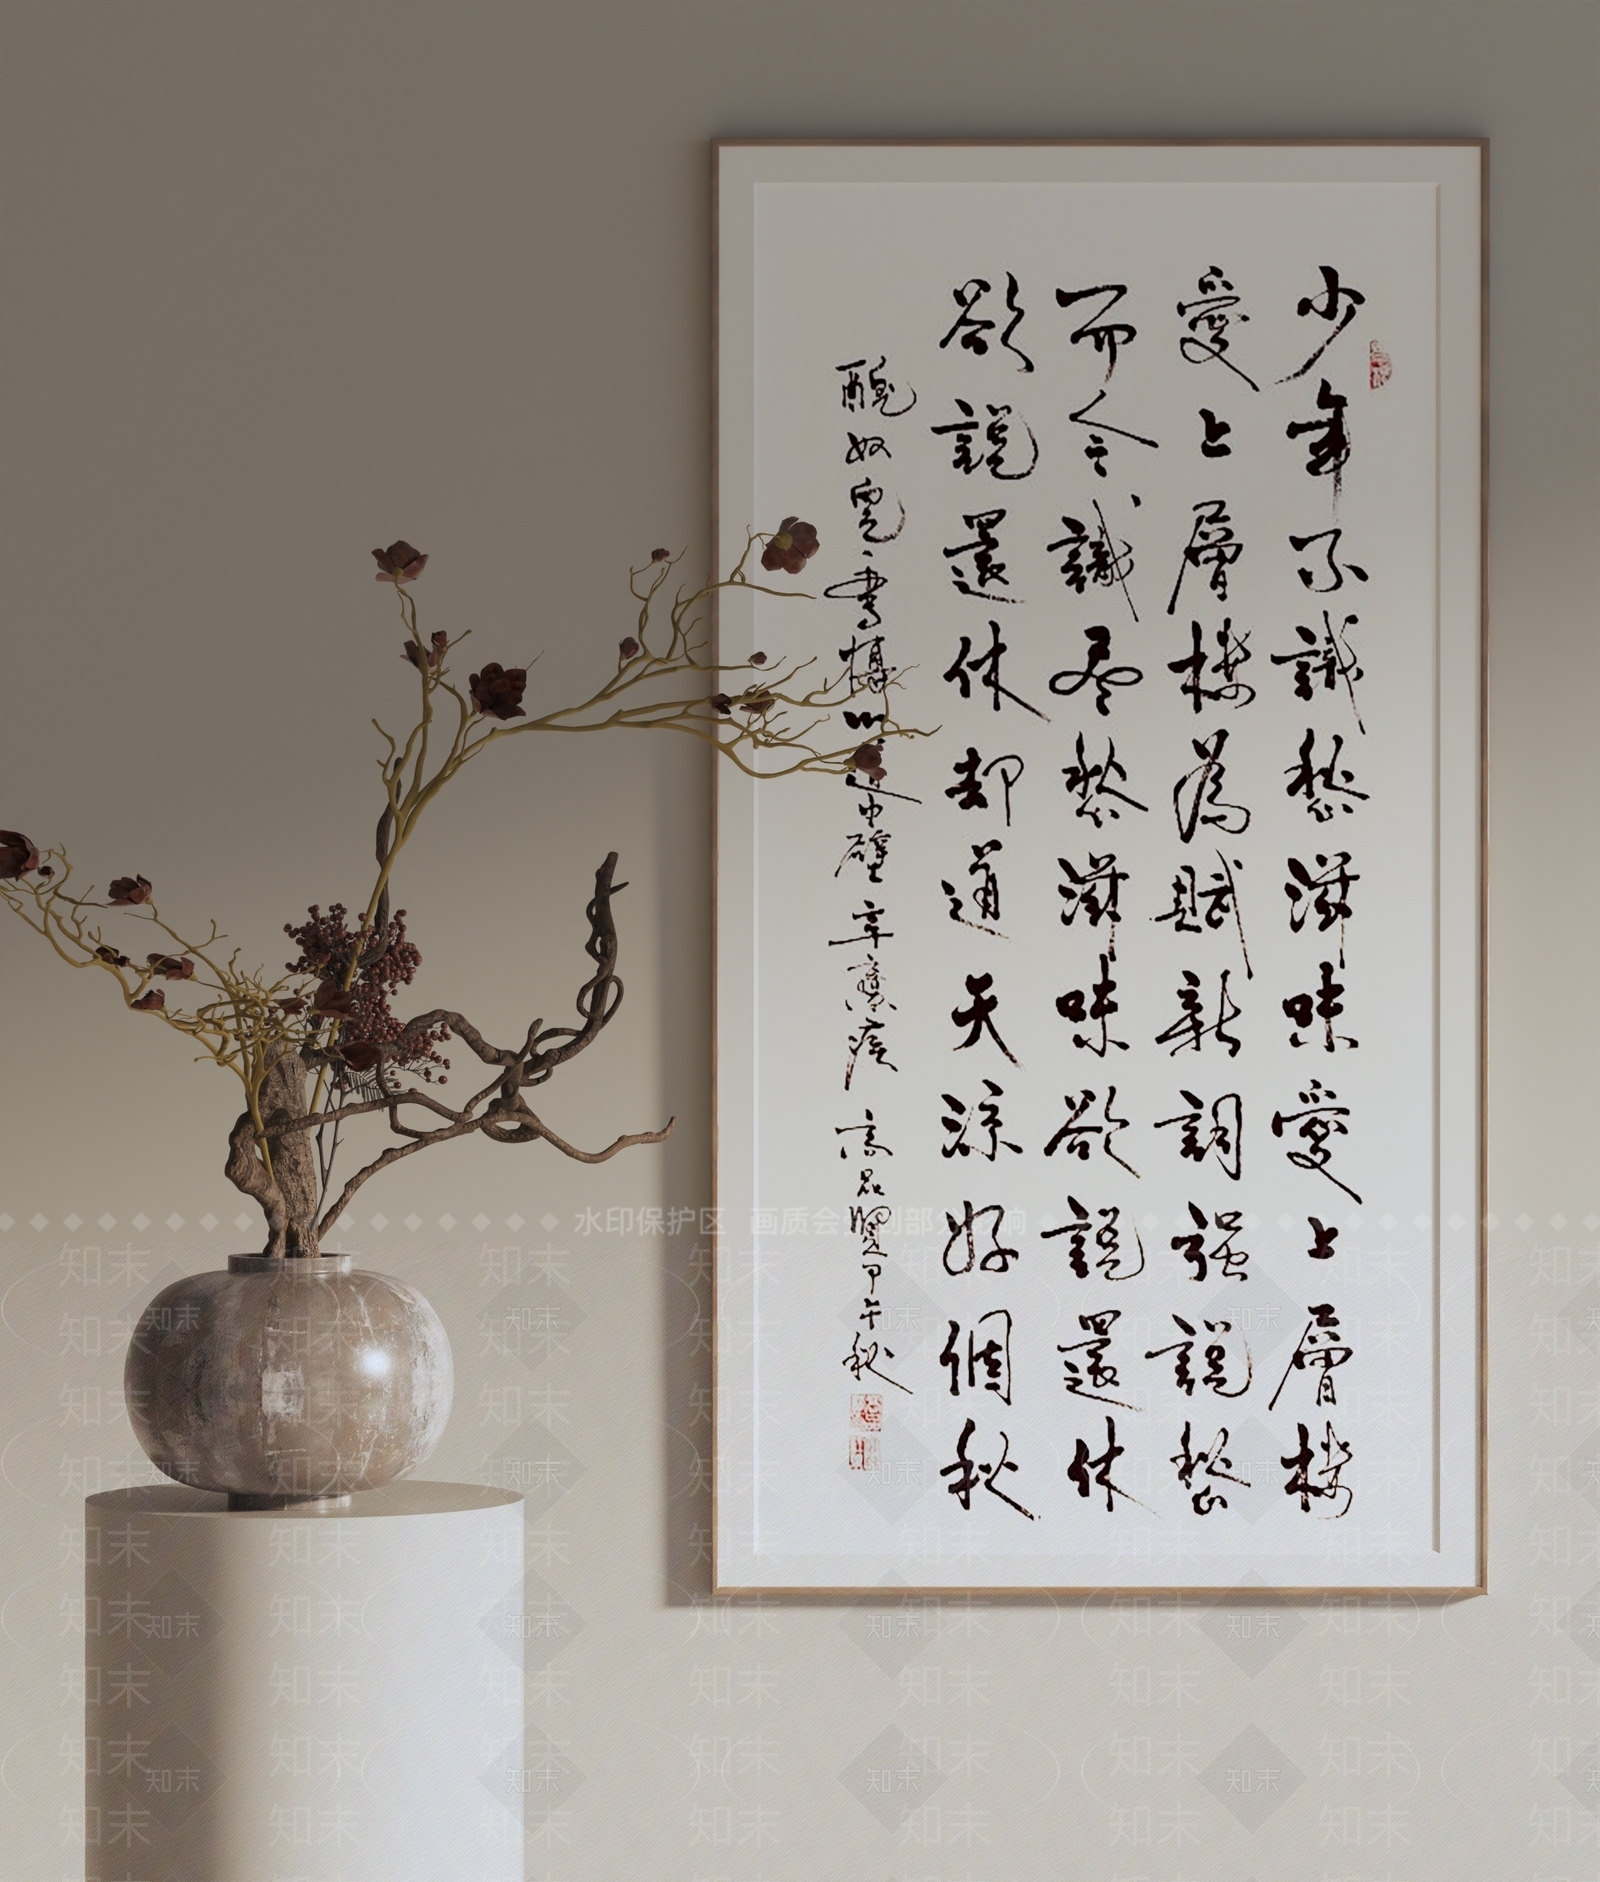 少年不識愁滋味愛上層樓
愛上層樓為賦新詞强說愁
而今識尽愁滋味欲說還休
欲說還休却道天涼好個秋
醜奴兒書博山道中壁辛棄疾 高 賢甲午秋
水印保护区 画质会受到部分影响
知末